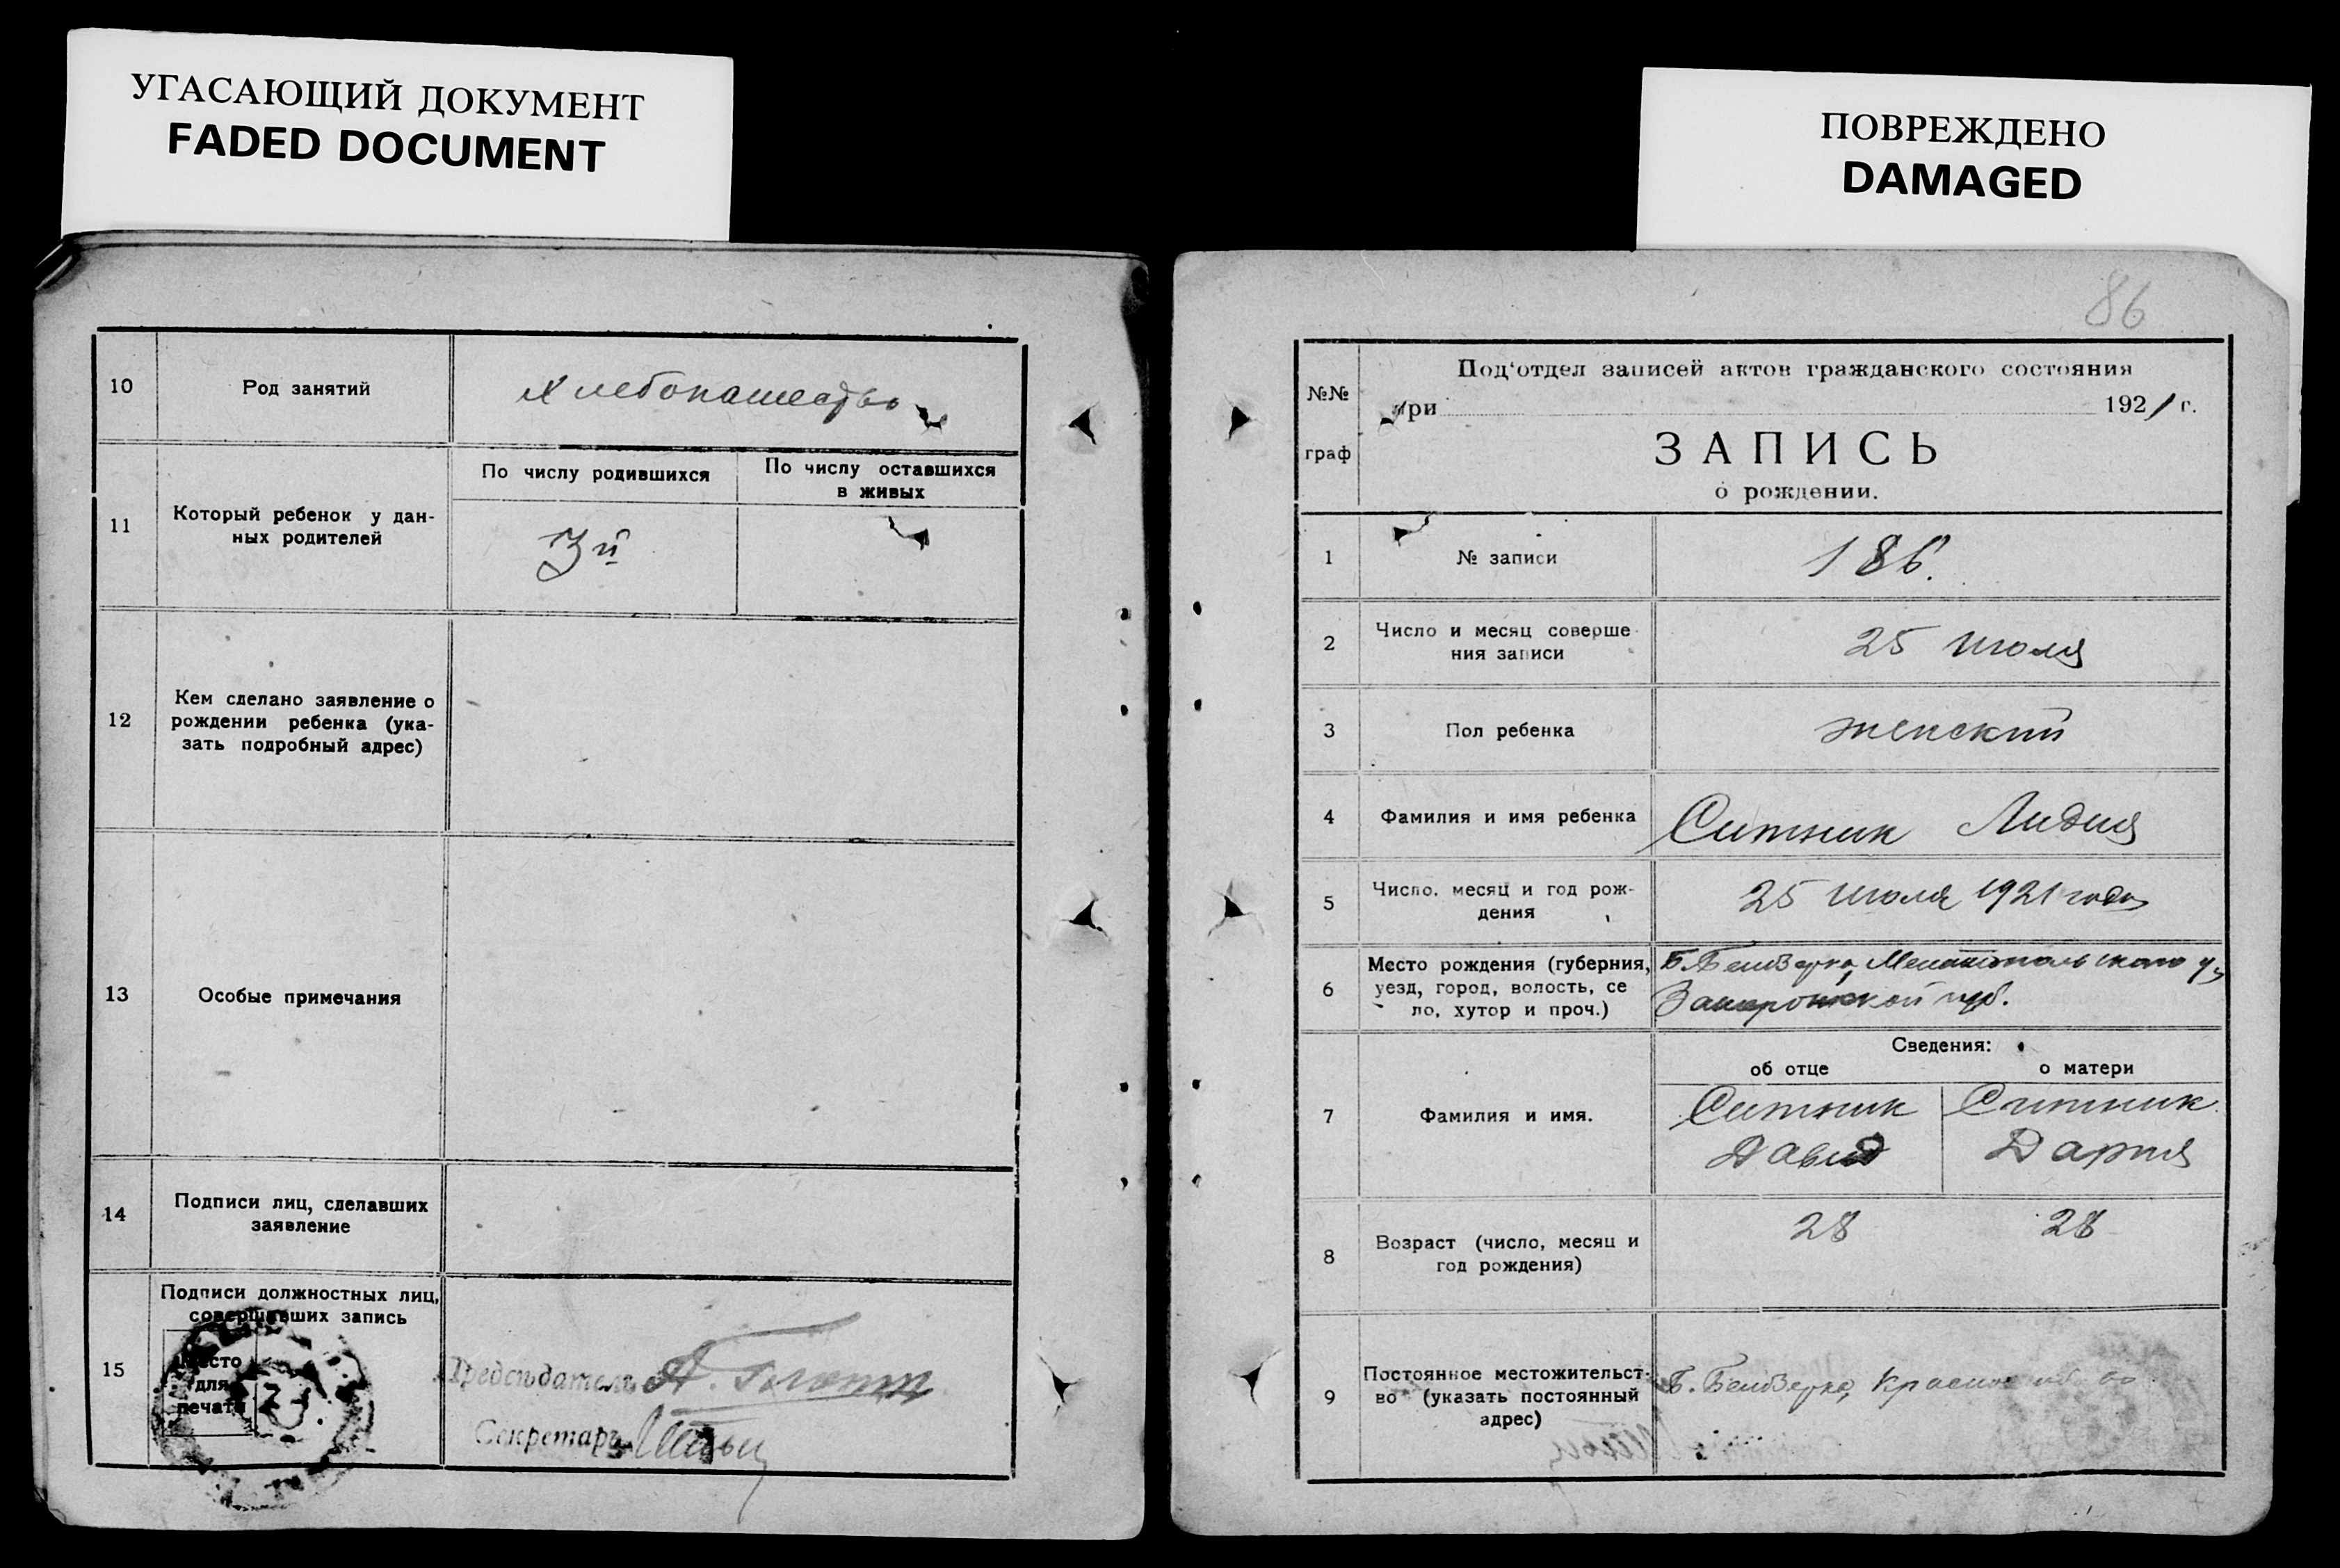 УГАСАЮЩИЙ ДОКУМЕНТ
FADED DOCUMENT
ПОВРЕЖДЕНО
DAMAGED
10
Род занятий
Хлебопашество
11
Который ребенок у дан-
ных родителей
По числу родившихся
По числу оставшихся
в живых
3й
12
Кем сделано заявление о
рождении ребенка (ука-
зать подробный адрес)
13
Особые примечания
14
Подписи лиц, сделавших
заявление
15
Подписи должностных лиц,
совершавших запись
Место
для
печати
Председатель А.
Секретарь
86
№№
граф
Под'отдел записей актов гражданского состояния
при 1921 г.
ЗАПИСЬ
о рождении.
1
№ записи
186.
2
Число и месяц соверше
ния записи
25 июля
3
Пол ребенка
женский
4
Фамилия и имя ребенка
Ситник Лидия
5
Число. месяц и год рож-
дения
25 июля 1921 года
6
Место рождения (губерния,
уезд, город, волость, се
ло, хутор и проч.)
Б. Белозерка, Мелитопольского у,
Запорожской губ.
Сведения:
об отце
о матери
7
Фамилия и имя.
Ситник
Давид
Ситник
Дария
8
Возраст (число, месяц и
год рождения)
28
28
9
Постоянное местожительст-
во (указать постоянный
адрес)
Б. Белозерка,